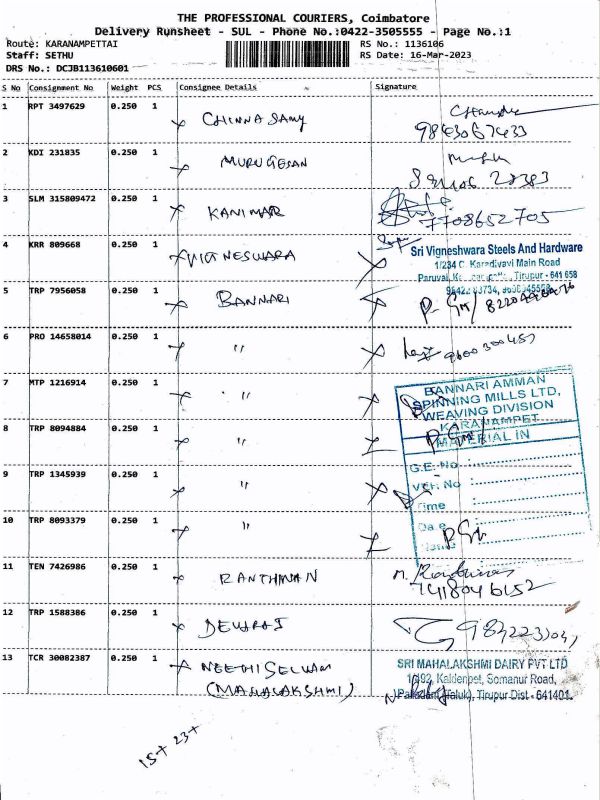 THE PROFESSIONAL COURIERS, Coimbatore
Delivery Runsheet - SUL - Phone No.:0422-3505555 - Page No.:1
Route: KARANAMPETTAI
Staff: SETHU
DRS No.: DCJB113610601
RS No.: 1136106
RS Date: 16-Mar-2023
S No Consignment No Weight PCS Consignee Details Signature
1 RPT 3497629 0.250 1 CHINNA SAMY
9843067433
2 KDI 231835 0.250 1 MURUGESAN
3 SLM 315809472 0.250 1 KANIMAR
7708652705
4 KRR 809668 0.250 1 VIGNESWARA
Sri Vigneshwara Steels And Hardware
1/234 C, Karadivavi Main Road
Tirupur - 641 658
5 TRP 7956058 0.250 1 BANNARI
6 PRO 14658014 0.250 1 "
9600300457
7 MTP 1216914 0.250 1 "
BANNARI AMMAN
SPINNING MILLS LTD,
WEAVING DIVISION
KARANAMPET
MATERIAL IN
8 TRP 8094884 0.250 1 "
G.E. No :
9 TRP 1345939 0.250 1 "
VEH. No :
Time :
10 TRP 8093379 0.250 1 "
Date
Name
11 TEN 7426986 0.250 1
12 TRP 1588386 0.250 1 DEVARAJ
13 TCR 30082387 0.250 1 NEETHISELVAM
(MAHALAKSHMI)
SRI MAHALAKSHMI DAIRY PVT LTD
Somanur Road,
Palladam (Taluk), Tirupur Dist - 641401.
15+ 23+